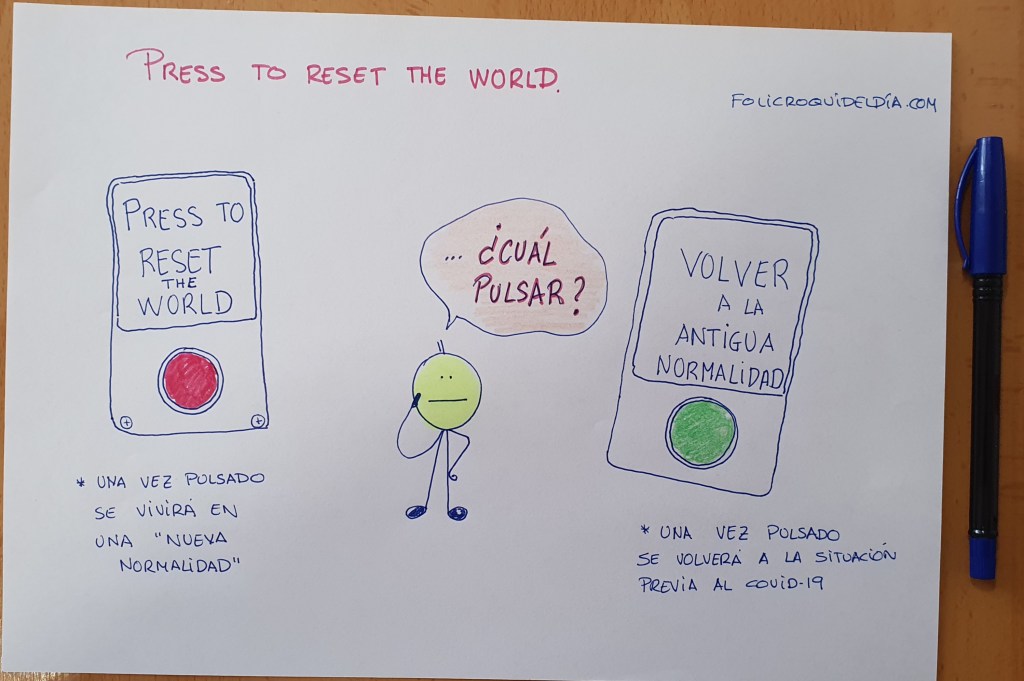 PRESS TO RESET THE WORLD.
FOLICROQUIDELDÍA.COM
PRESS TO
RESET
THE
WORLD
... ¿CUÁL
PULSAR?
VOLVER
A LA
ANTIGUA
NORMALIDAD
* UNA VEZ PULSADO
SE VIVIRÁ EN
UNA "NUEVA
NORMALIDAD"
* UNA VEZ PULSADO
SE VOLVERÁ A LA SITUACIÓN
PREVIA AL COVID-19